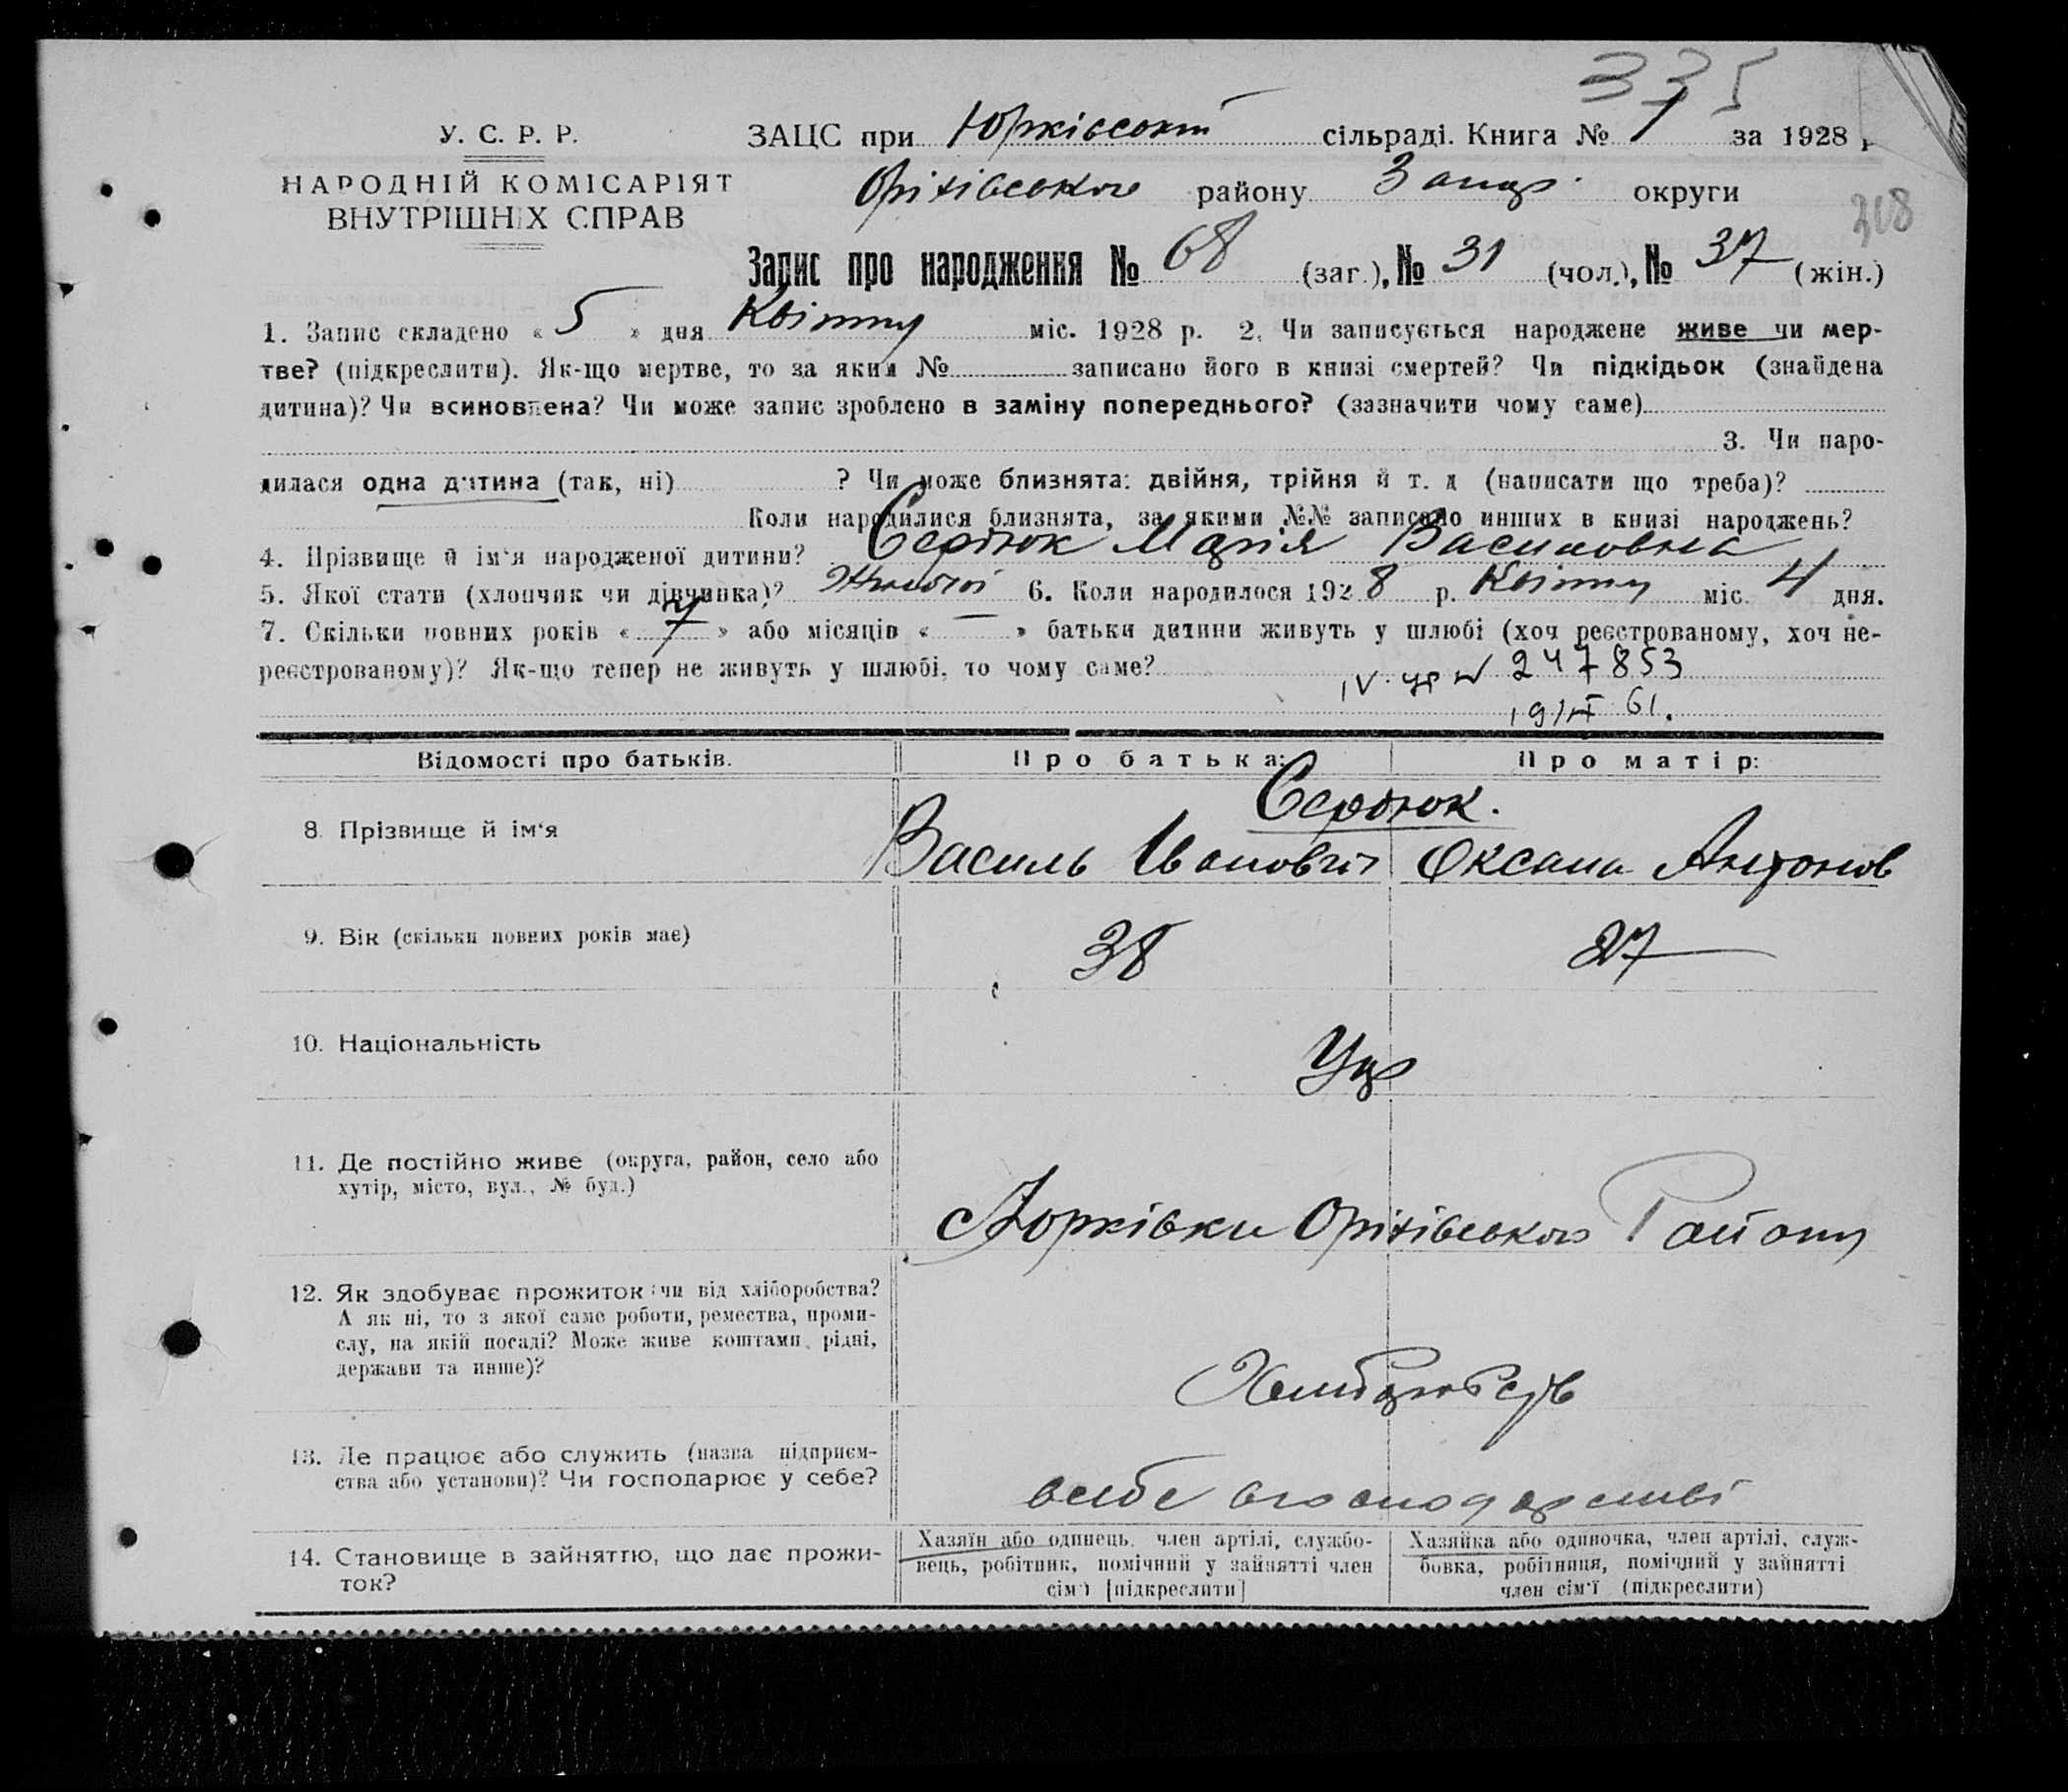 335
У. С. Р. Р.
НАРОДНІЙ КОМІСАРІЯТ
ВНУТРІШНІХ СПРАВ
ЗАЦС при Юрківській сільраді. Книга № 1 за 1928 р
Оріхівського району Запор. округи
208
Запис про народження № 68 (заг.), № 31 (чол.), № 37 (жін.)
1. Запис складено « 5 » дня Квітня міс. 1928 р. 2. Чи записується народжене живе чи мер-
тве? (підкреслити). Як-що мертве, то за яким № записано його в книзі смертей? Чи підкідьок (знайдена
дитина)? Чи всиновлена? Чи може запис зроблено в заміну попереднього? (зазначити чому саме)
3. Чи наро-
дилася одна дитина (так, ні) ? Чи може близнята: двійня, трійня й т. д (написати що треба)?
Коли народилися близнята, за якими №№ записано инших в книзі народжень?
4. Прізвище й ім'я народженої дитини? Сердюк Марія Василовна
5. Якої стати (хлопчик чи дівчинка)? Жіночої 6. Коли народилося 1928 р. Квітня міс. 4 дня.
7. Скільки повних років « 7 » або місяців « — » батьки дитини живуть у шлюбі (хоч реєстрованому, хоч не-
реєстрованому)? Як-що тепер не живуть у шлюбі, то чому саме?
IV-ЯР № 247853
61.
Відомості про батьків.
Про батька:
Про матір:
Сердюк.
8. Прізвище й ім'я
Василь Іванович
Оксана Антонов
9. Вік (скільки повних років має)
38
27
10. Національність
Укр
11. Де постійно живе (округа, район, село або
хутір, місто, вул., № буд.)
Юрківки Оріхівського Району
12. Як здобуває прожиток: чи від хліборобства?
А як ні, то з якої саме роботи, ремества, проми-
слу, на якій посаді? Може живе коштами рідні,
держави та инше)?
13. Де працює або служить (назва підприєм-
ства або установи)? Чи господарює у себе?
всебе вгосподарстві
14. Становище в зайняттю, що дає прожи-
ток?
Хазяїн або одинець, член артілі, службо-
вець, робітник, помічний у зайнятті член
сім'ї [підкреслити]
Хазяйка або одиночка, член артілі, служ-
бовка, робітниця, помічний у зайнятті
член сім'ї (підкреслити)